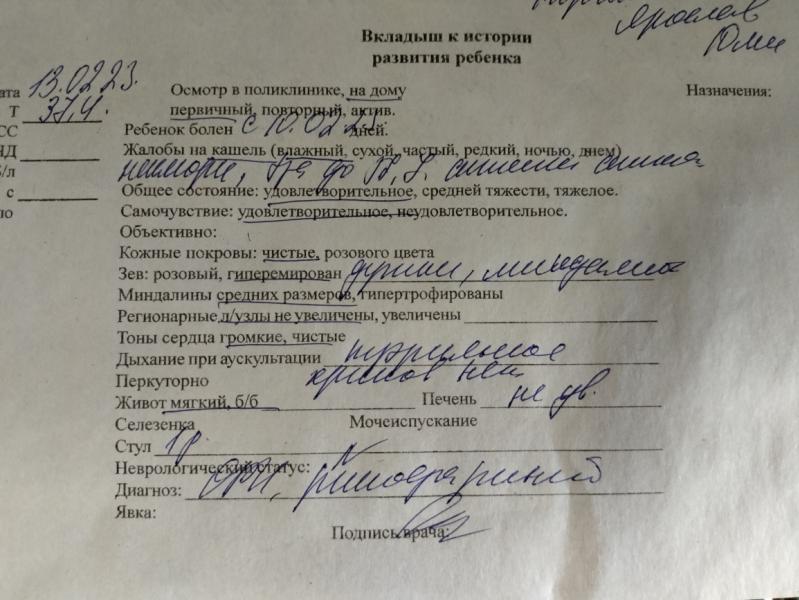 Ярослав
Юли
Вкладыш к истории
развития ребенка
ата 13.02.23.
Осмотр в поликлинике, на дому
Назначения:
Т 37,4.
первичный, повторный, актив.
СС
Ребенок болен с 10.02.23. дней.
НД
Жалобы на кашель (влажный, сухой, частый, редкий, ночью, днем)
б/л
насморк, до
с
Общее состояние: удовлетворительное, средней тяжести, тяжелое.
по
Самочувствие: удовлетворительное, неудовлетворительное.
Объективно:
Кожные покровы: чистые, розового цвета
Зев: розовый, гиперемирован дужки, миндалины
Миндалины средних размеров, гипертрофированы
Регионарные л/узлы не увеличены, увеличены
Тоны сердца громкие, чистые
Дыхание при аускультации пуэрильное
хрипов нет
Перкуторно
Живот мягкий, б/б Печень не ув.
Селезенка Мочеиспускание
Стул 1р.
Неврологический статус: N
Диагноз: ОРИ, ринофарингит
Явка:
Подпись врача: